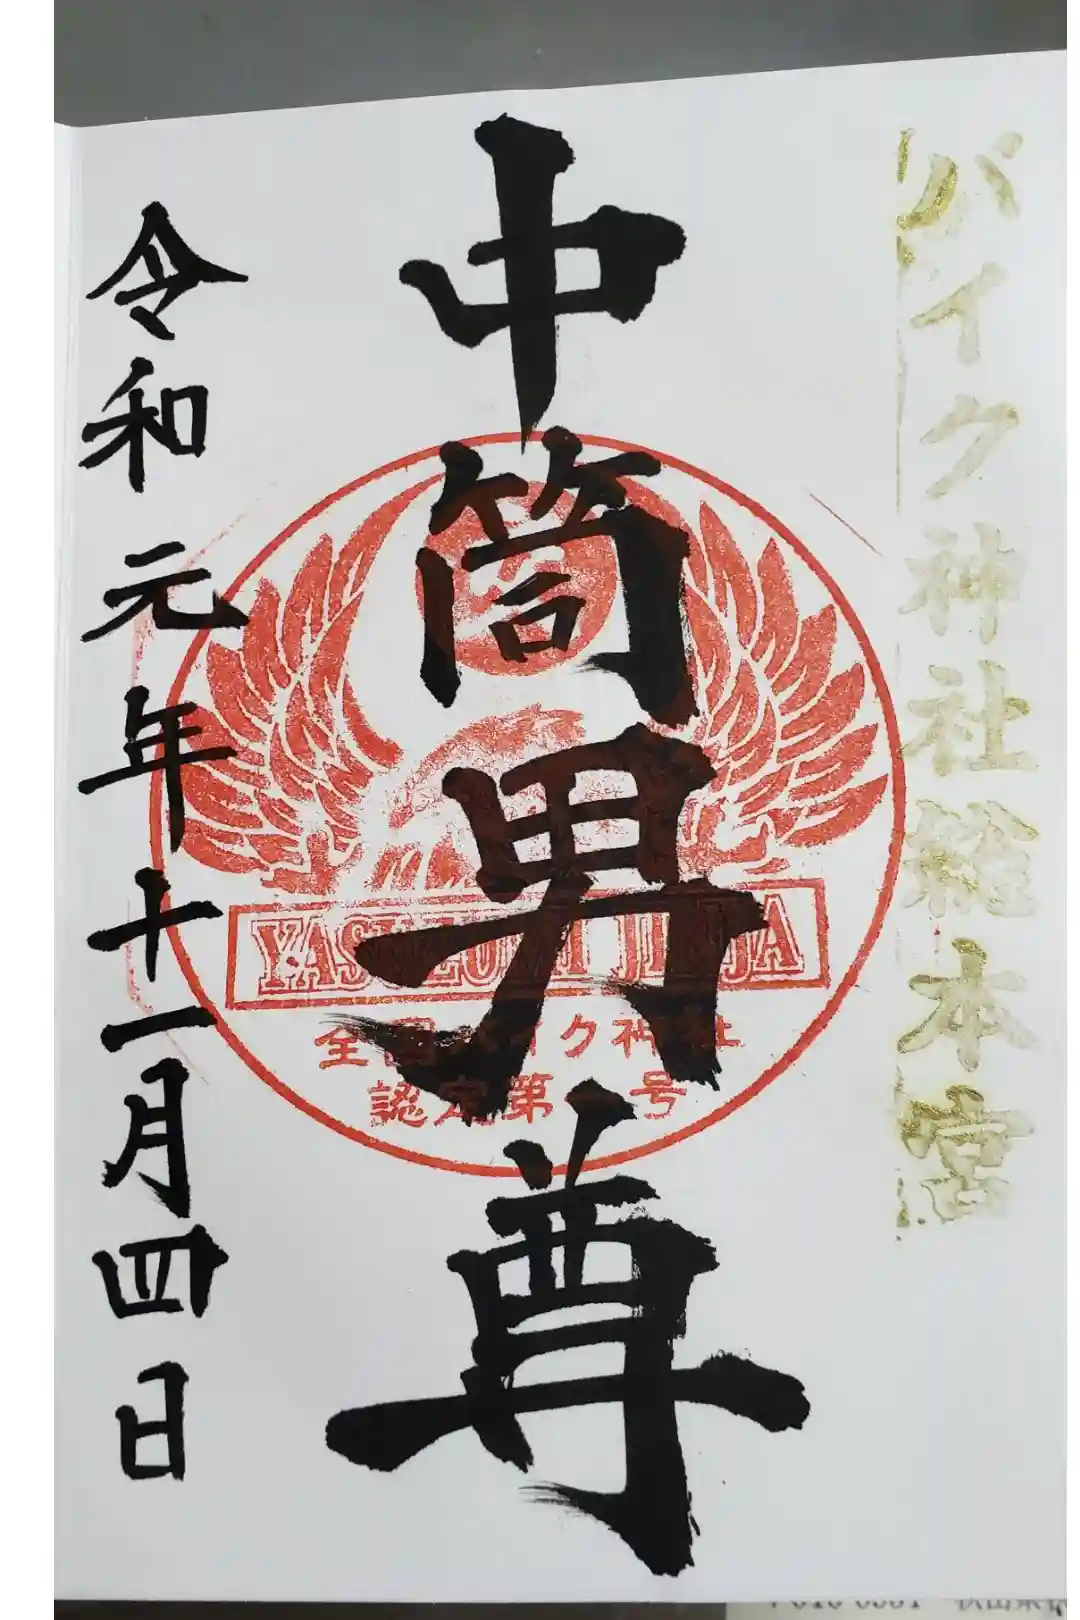 バイク神社総本宮
中筒男尊
YASUZUMI JINJA
全国バイク神社
認定第一号
令和元年十一月四日